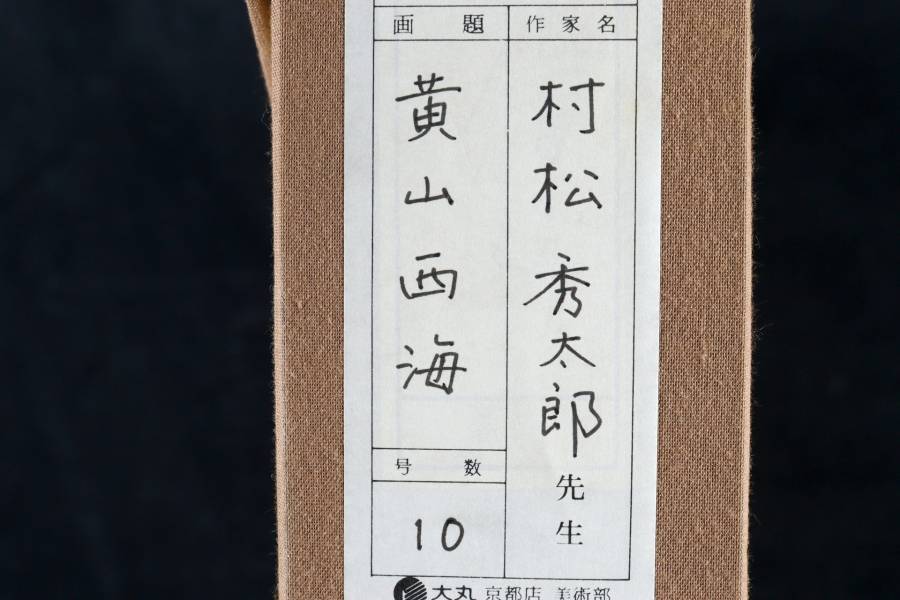 作家名
村松秀太郎先生
画題
黄山西海
号数
10
大丸 京都店 美術部